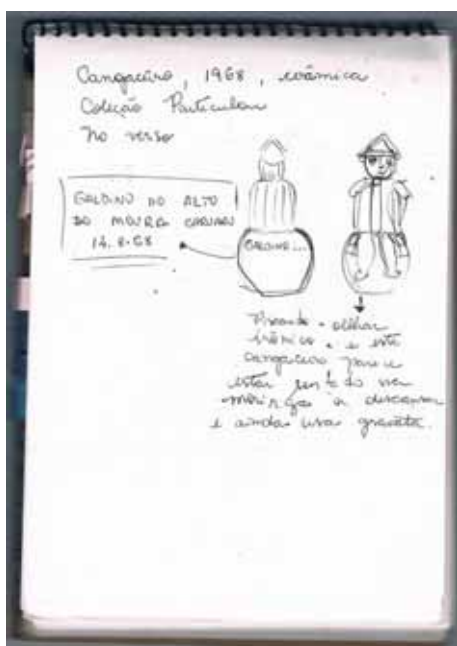 Cangaceiro, 1968, cerâmica
Coleção Particular
No verso
GALDINO DO ALTO
DO MOURA CARUARU
14.8.68
GALDINO...
olhar
irônico, e este
cangaceiro parece
estar sentado na
moringa a descansar
e ainda usa gravata.